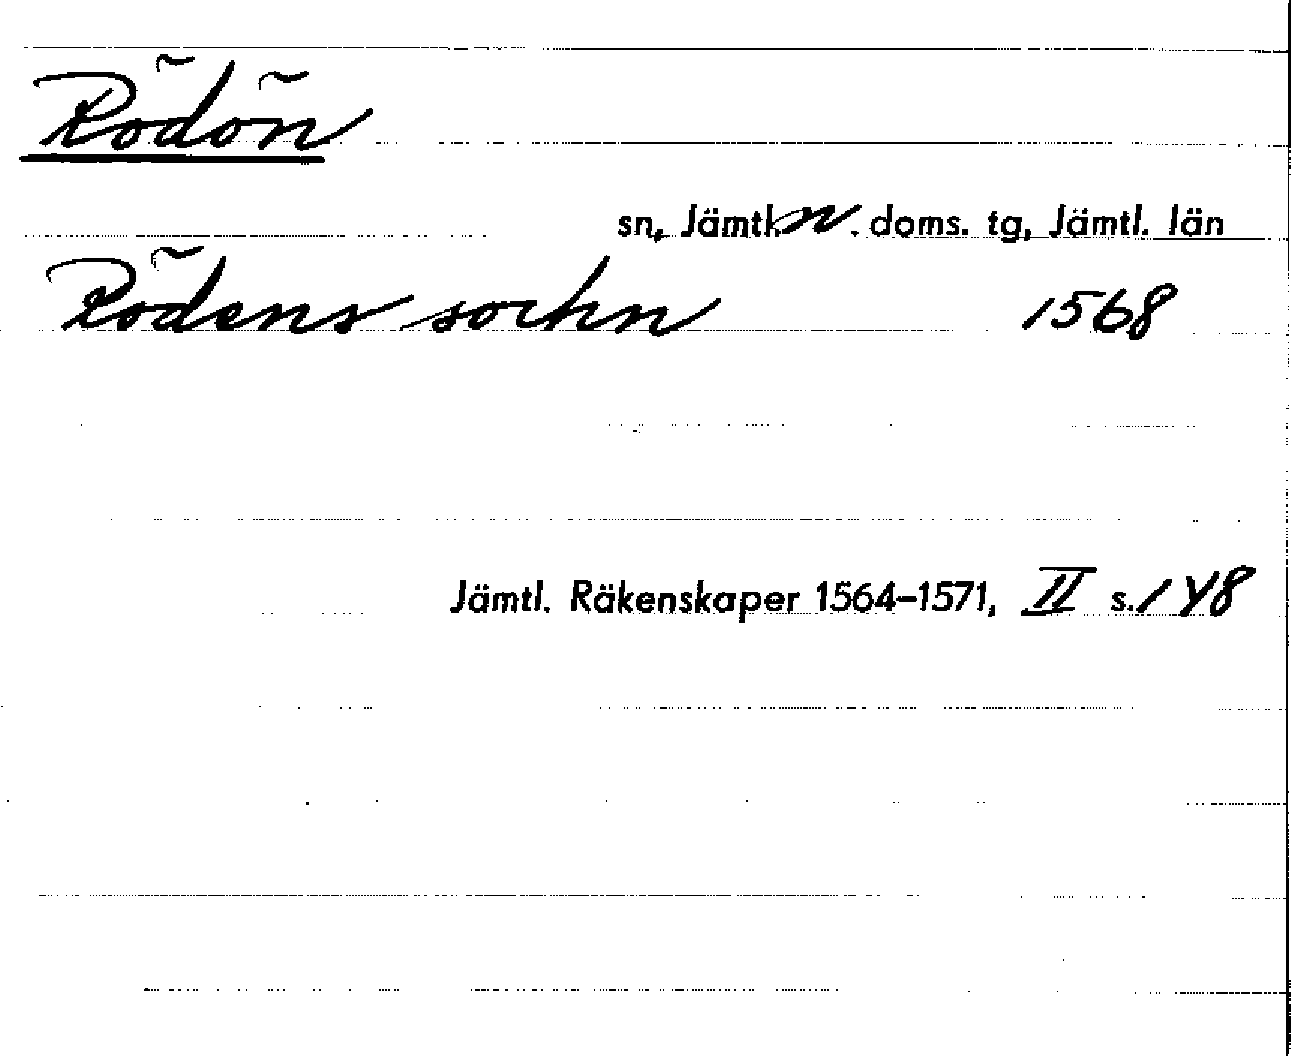 Rödön
sn, Jämtl. n. doms. tg, Jämtl. län
Rödens sochn 1568
Jämtl. Räkenskaper 1564–1571, II s. 148